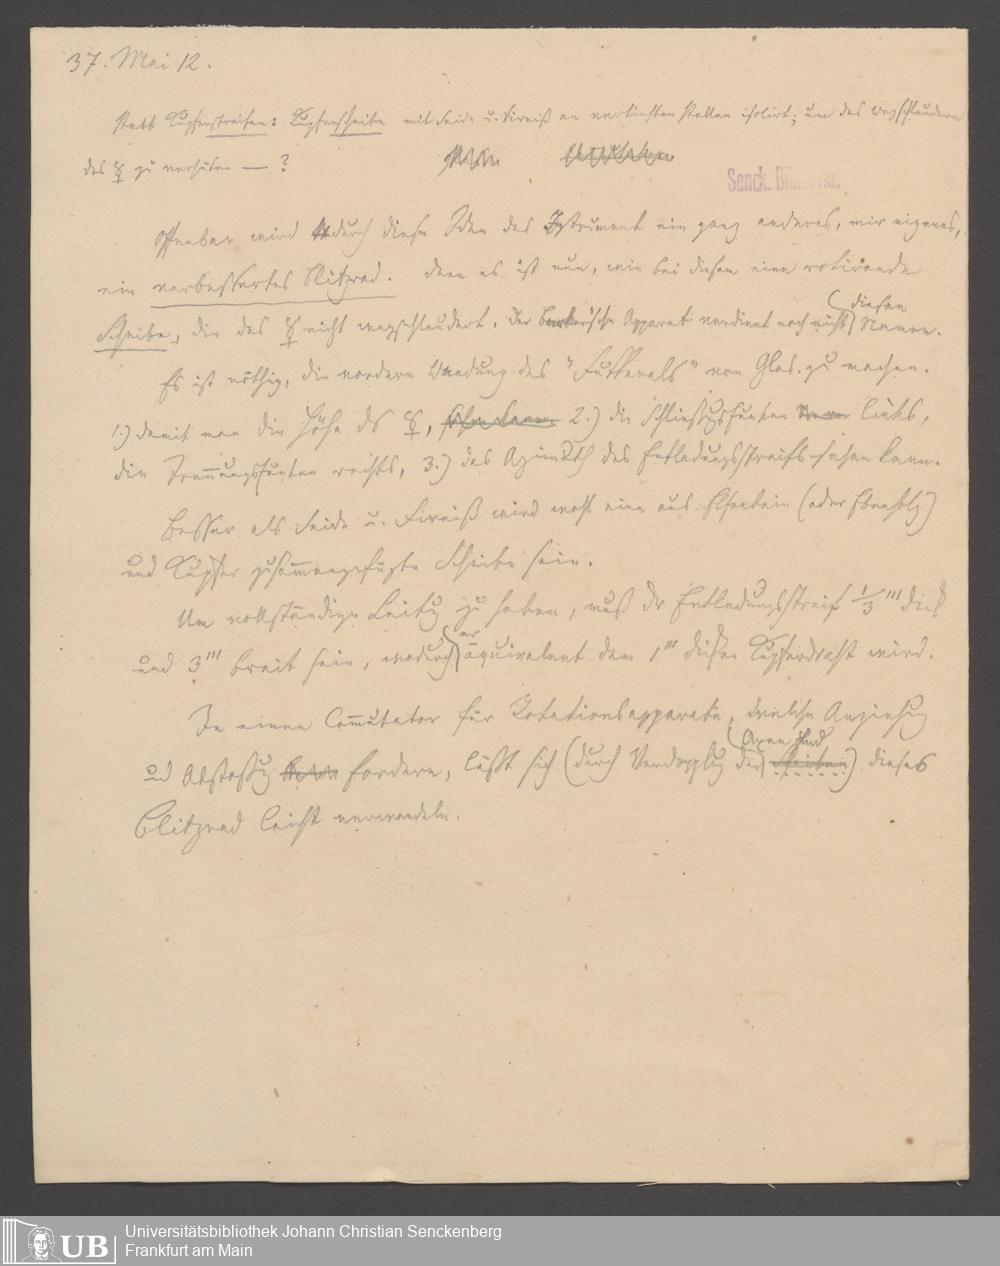 37. Mai 12.
Statt Kupferstreifen: Kupferscheibe mit Seide u. Firniß an vertieften Stellen isolirt; um das Wegschleudern
des ☿ zu verhüten — ?
Senck. Bibl
Offenbar wird durch diese Idee das Instrument ein ganz anderes, mir eigenes,
ein verbessertes Blitzrad. denn es ist nun, wie bei diesem eine rotirende
Scheibe, die das ☿ nicht wegschleudert. Der Barker'sche Apparat verdient noch nicht diesen Namen.
Es ist nöthig, die vordere Wandung des "Futterals" von Glas zu machen.
1.) damit man die Höhe ds ☿, 2.) die Schließungsfunken links,
die Trennungsfunken rechts, 3.) das Azimuth des Entladungsstreifs sehen kann.
Besser als Seide u. Firniß wird wohl eine aus Elfenbein (oder Ebenholz)
und Kupfer zusammengefügte Scheibe sein.
Um vollständige Leitg zu haben, muß dr Entladungsstreif 1/3''' dick
und 3''' breit sein, wodurch er äquivalent dem 1''' dicken Kupferdraht wird.
In einen Commutator für Rotationsapparate, welche Anziehung
und Abstoßg fordern, läßt sich (durch Verdopplg der Axen und Scheiben) dieses
Blitzrad leicht verwandeln.
Universitätsbibliothek Johann Christian Senckenberg
UB Frankfurt am Main